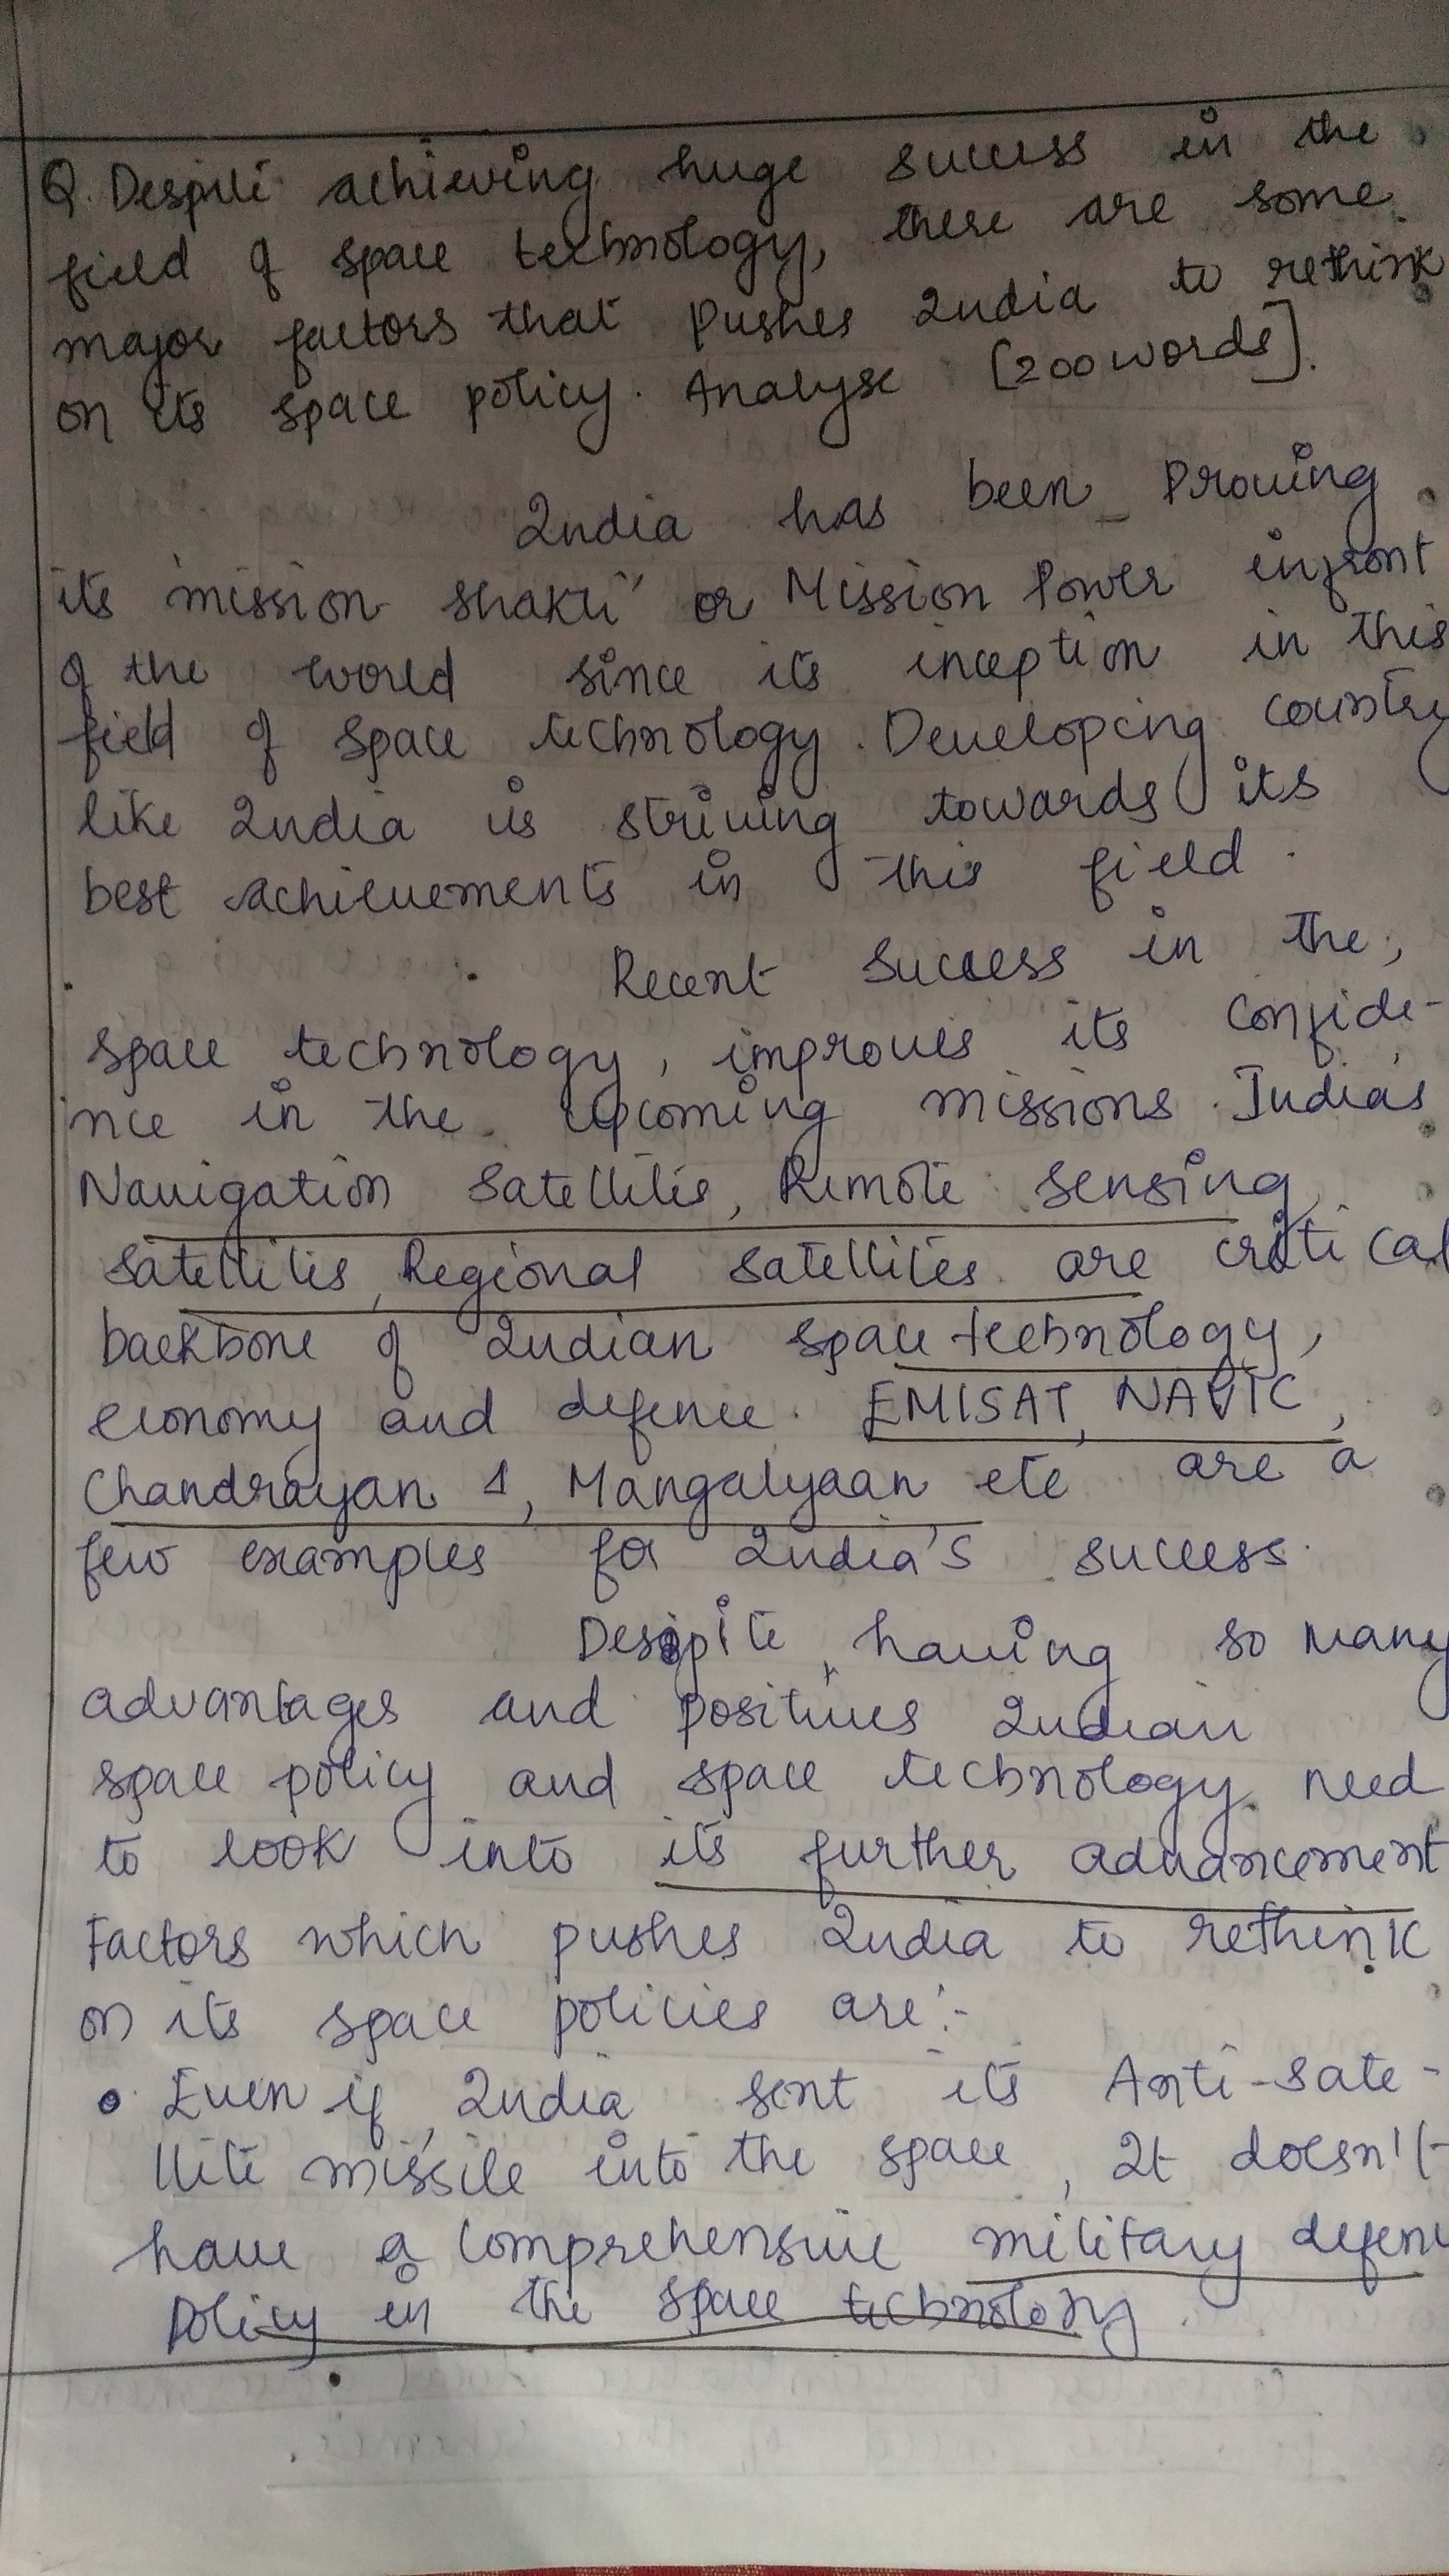 Q. Despite achieving huge success in the
field of space technology, there are some
major factors that pushes India to rethink
on its space policy. Analyse [200 words].
India has been proving
its 'mission shakti' or Mission Power infront
of the world since its inception in this
field of space technology. Developing country
like India is striving towards its
best achievements in this field.
Recent success in the,
space technology, improves its confide-
nce in the upcoming missions. India's
Navigation satellites, Remote sensing
satellites, Regional satellites are critical
backbone of Indian space technology,
economy and defence. EMISAT, NAVIC,
Chandrayan 1, Mangalyaan etc are a
few examples for India's success.
Despite, having so many
advantages and positives Indian
space policy and space technology need
to look into its further advancement
Factors which pushes India to rethink
on its space policies are:-
• Even if, India sent its Anti-sate-
llite missile into the space, It doesn't
have a comprehensive military defen
policy in the space technology.